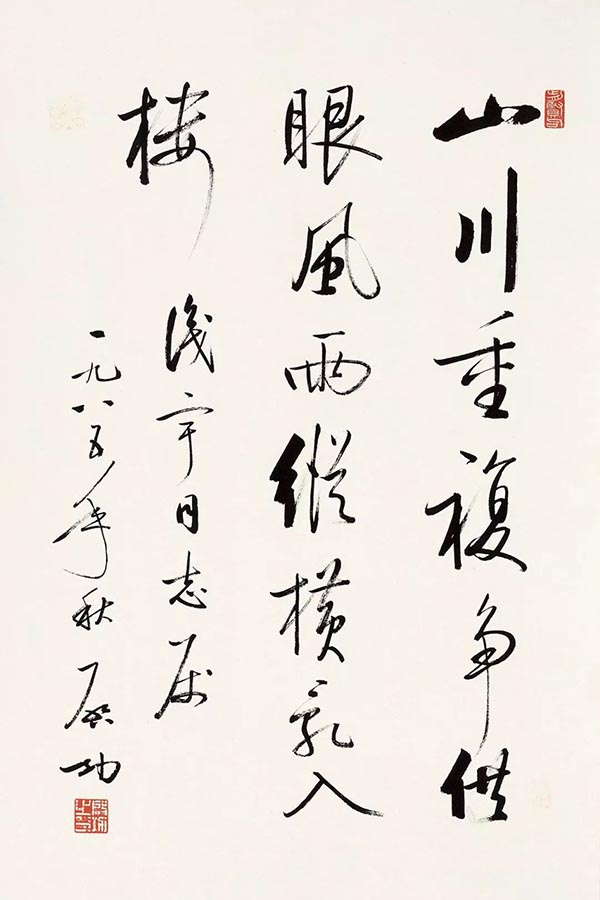 山川重複争供
眼風雨縱横亂入
楼
宇同志属
一九八五年秋 启功